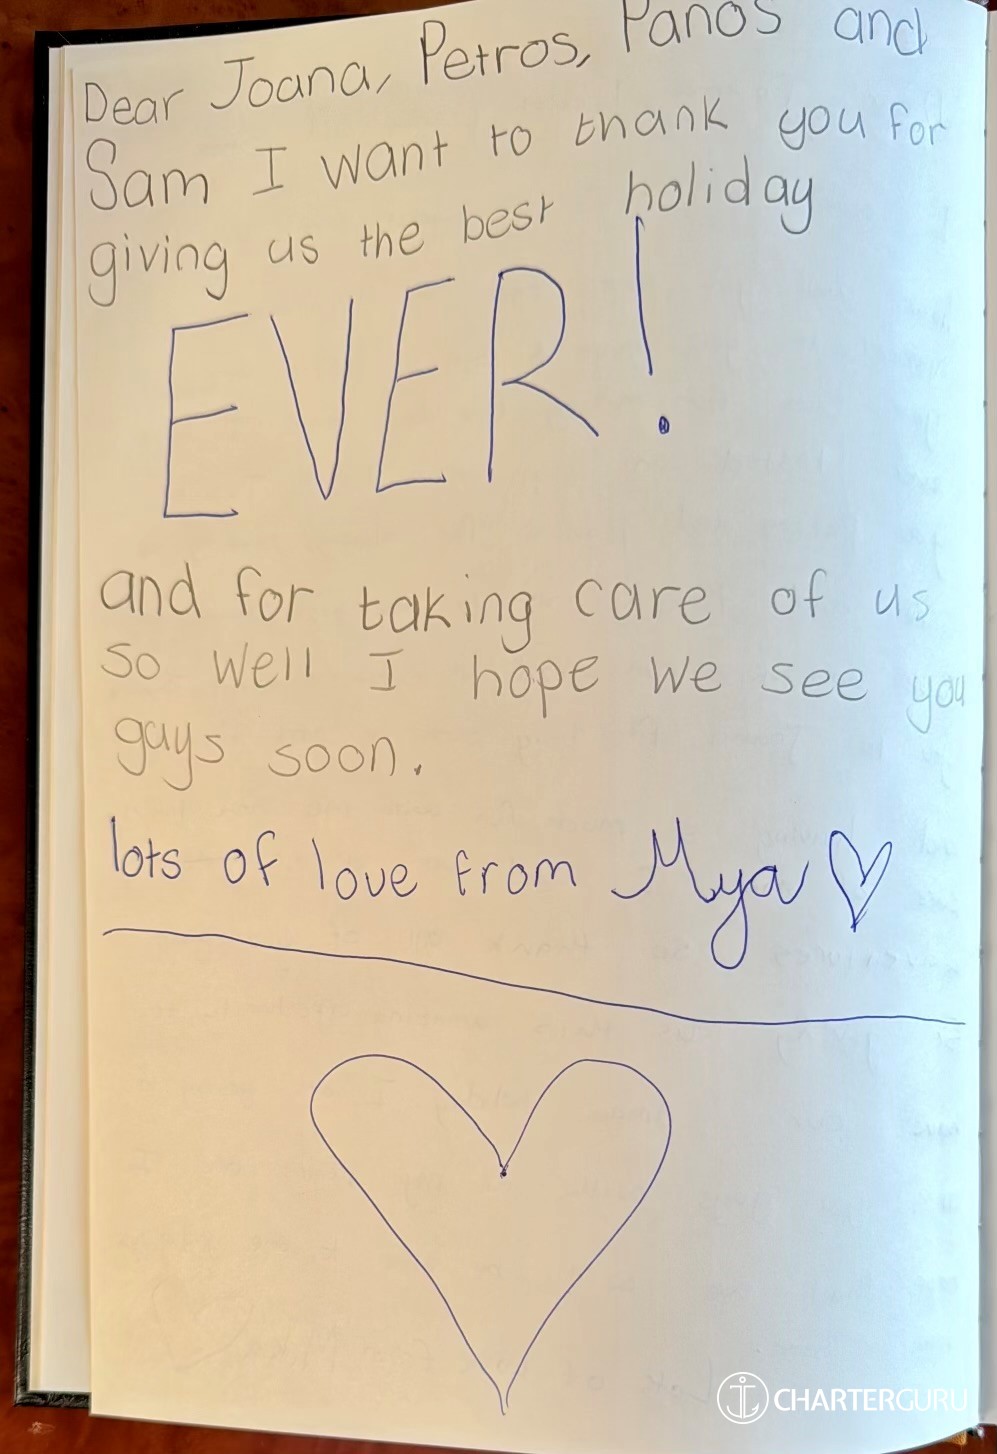 Dear Joana, Petros, Panos and
Sam I want to thank you for
giving us the best holiday
EVER!
and for taking care of us
so well I hope we see you
guys soon.
lots of love from Mya ♡
CHARTERGURU